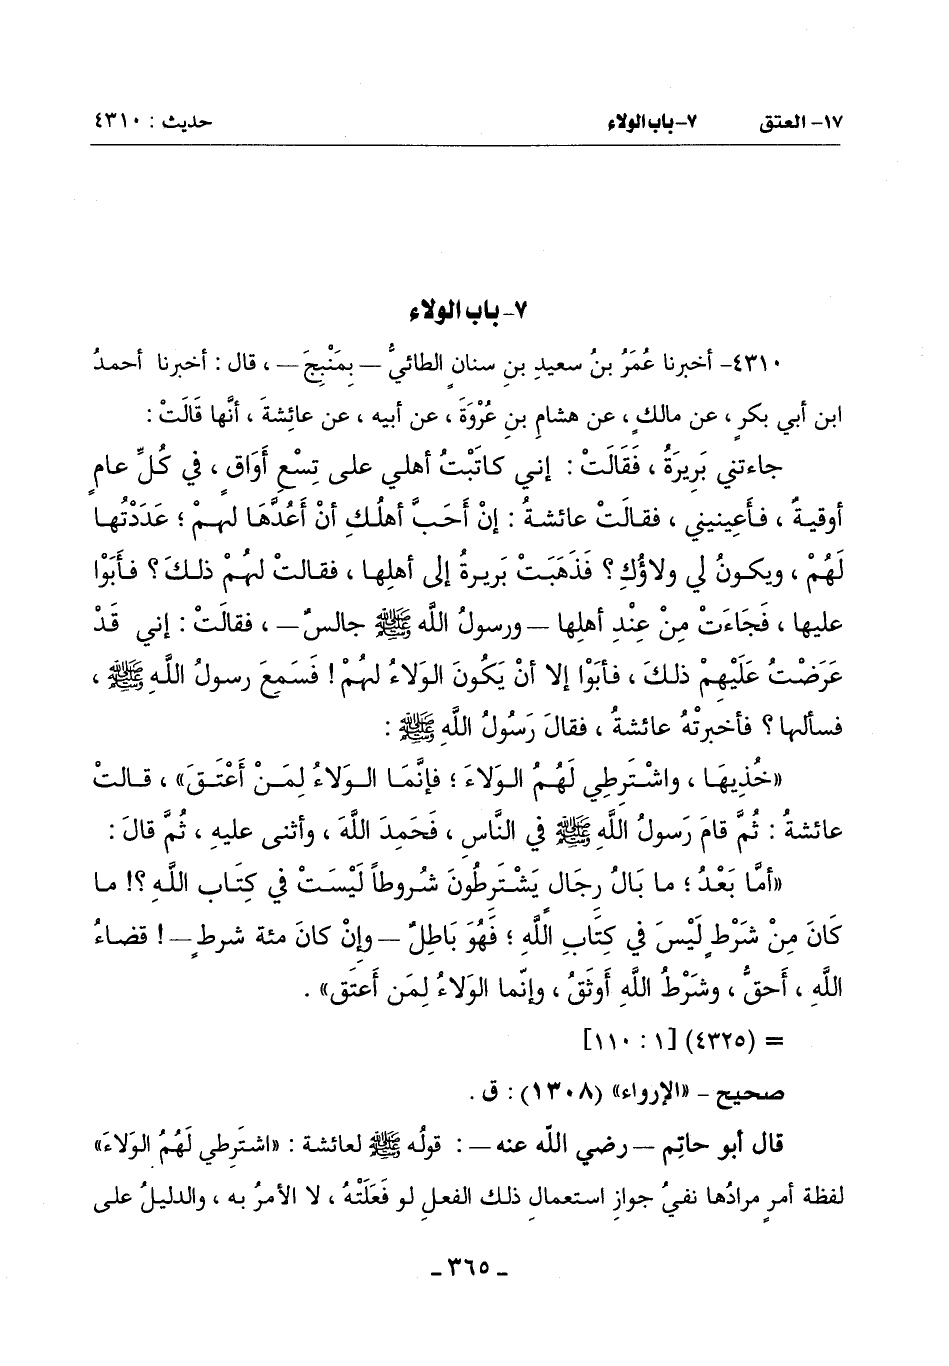 ١٧- العتق ٧-باب الولاء حديث : ٤٣١٠
٧- باب الولاء
٤٣١٠- أخبرنا عُمَرُ بنُ سعيدِ بنِ سنانٍ الطائيُّ – بِمَنْبِجَ – ، قال : أخبرنا أحمدُ
ابن أبي بكرٍ ، عن مالكٍ ، عن هشامِ بنِ عُرْوَةَ ، عن أبيه ، عن عائشةَ ، أنَّها قَالَتْ :
جاءتني بَرِيرَةُ ، فَقَالَتْ : إني كاتَبْتُ أهلي على تِسْعِ أَوَاقٍ ، في كُلِّ عامٍ
أوقيةٌ ، فأَعِينيني ، فقالَتْ عائشةُ : إنْ أَحَبَّ أهلُكِ أنْ أَعُدَّهَا لهمْ ؛ عَدَدْتُها
لَهُمْ ، ويكونُ لي ولاؤُكِ ؟ فَذَهَبَتْ بَرِيرةُ إلى أهلِها ، فقالتْ لهُمْ ذلكَ ؟ فأبَوْا
عليها ، فَجَاءَتْ مِنْ عِنْدِ أهلِها – ورسولُ اللَّه ﷺ جالسٌ – ، فقالَتْ : إني قَدْ
عَرَضْتُ عَلَيْهِمْ ذلكَ ، فأبَوْا إلا أنْ يَكُونَ الوَلاءُ لهُمْ ! فَسَمِعَ رسولُ اللَّهِ ﷺ ،
فسألها ؟ فأخبرتْهُ عائشةُ ، فقالَ رَسُولُ اللَّهِ ﷺ :
«خُذِيهَا ، واشْتَرِطِي لَهُمُ الوَلاءَ ؛ فإنَّمَا الوَلاءُ لِمَنْ أَعْتَقَ» ، قالتْ
عائشةُ : ثُمَّ قامَ رَسولُ اللَّهِ ﷺ في النَّاسِ ، فَحَمِدَ اللَّهَ ، وأثنى عليهِ ، ثُمَّ قالَ :
«أمَّا بَعْدُ ؛ ما بَالُ رِجَالٍ يَشْتَرِطُونَ شُروطاً لَيْسَتْ في كِتَابِ اللَّهِ ؟! ما
كَانَ مِنْ شَرْطٍ لَيْسَ في كِتَابِ اللَّهِ ؛ فَهُوَ بَاطِلٌ – وإنْ كانَ مئة شرطٍ – ! قضاءُ
اللَّهِ ، أَحقُّ ، وشَرْطُ اللَّهِ أَوثَقُ ، وإنّما الوَلاءُ لِمَن أَعتَق» .
= (٤٣٢٥) [١ : ١١٠]
صحيح - «الإرواء» (١٣٠٨) : ق .
قال أبو حاتِم – رضي اللَّه عنه – : قولُه ﷺ لعائشة : «اشتَرِطي لَهُمُ الوَلاءَ»
لفظة أمرٍ مرادُها نفيُ جوازِ استعمالِ ذلك الفعلِ لو فَعَلَتْهُ ، لا الأمرُ به ، والدليلُ على
ـ ٣٦٥ ـ